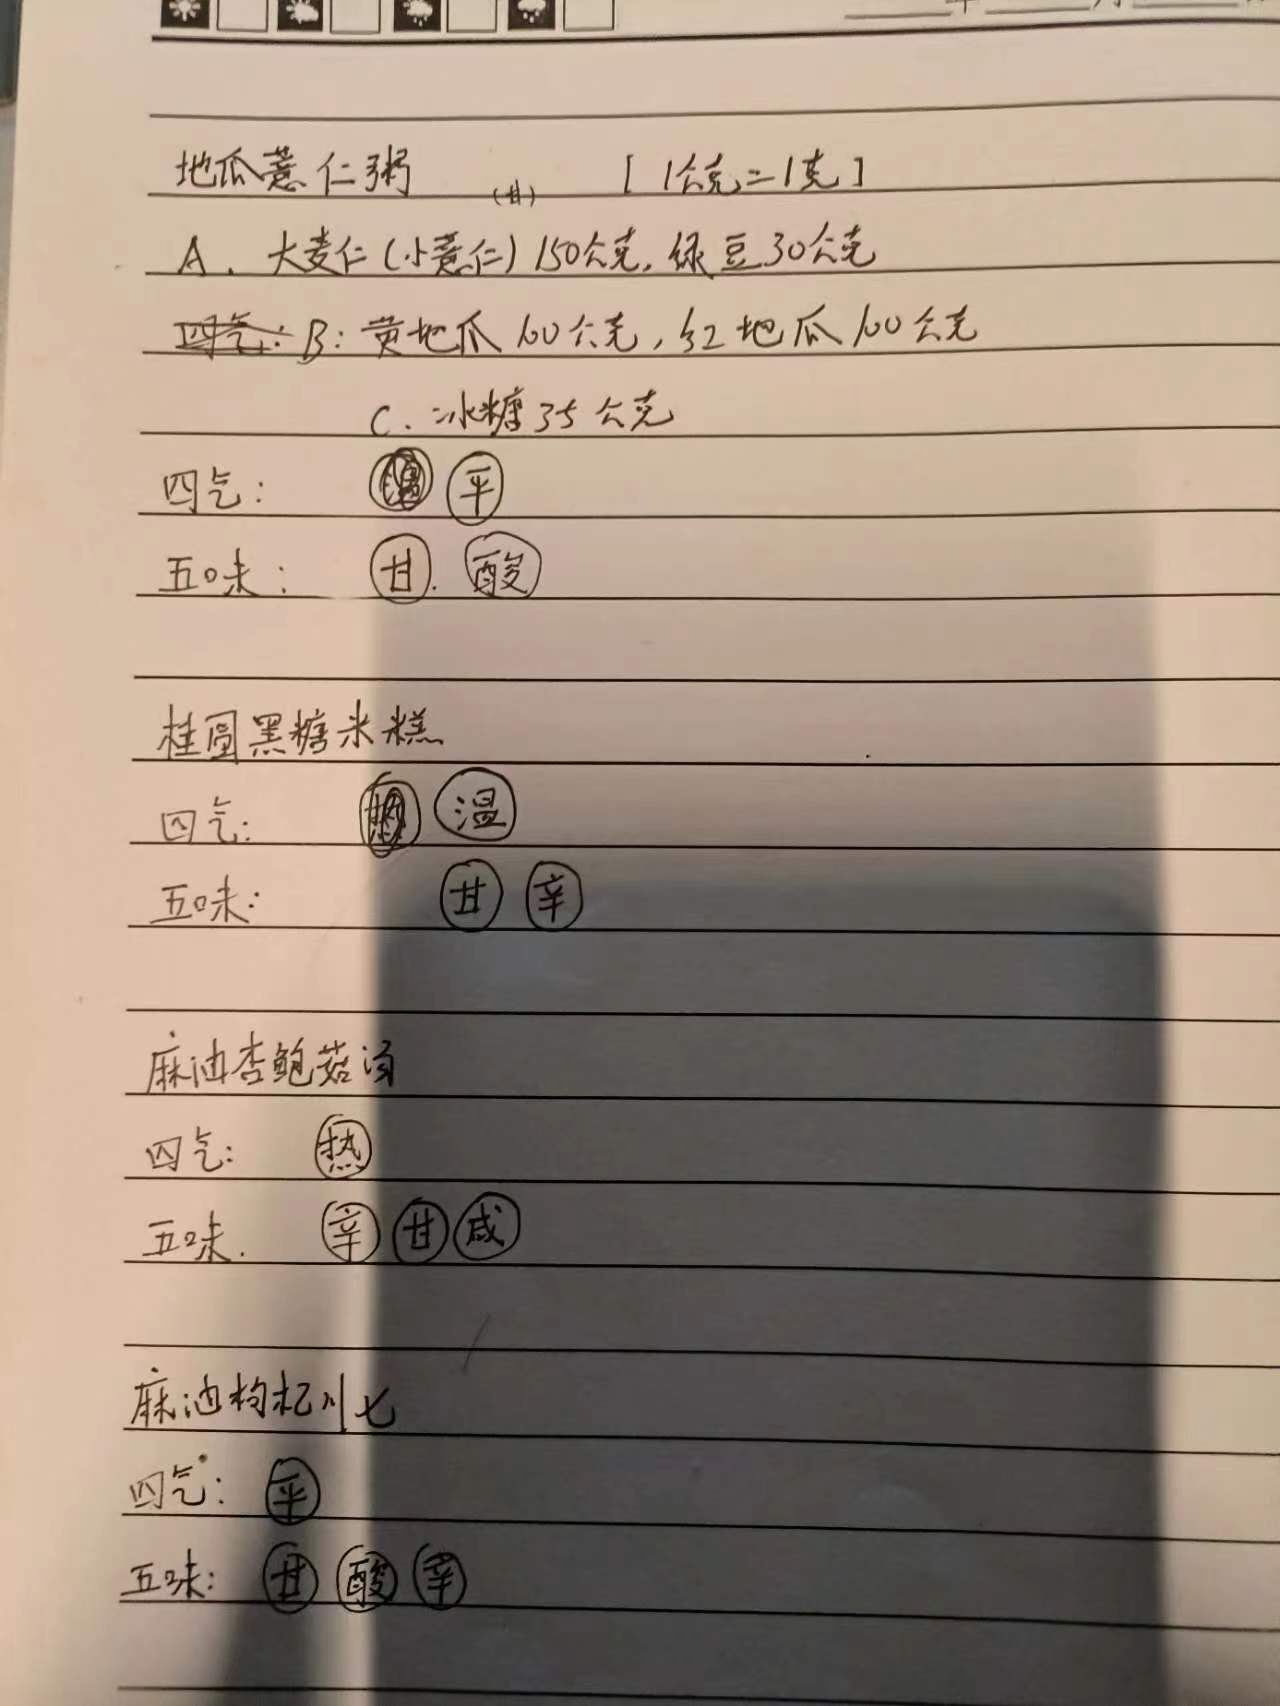 年 月
地瓜薏仁粥 [1公克=1克]
(甘)
A. 大麦仁(小薏仁)150公克,绿豆30公克
四气: B: 黄地瓜100公克,红地瓜100公克
C. 冰糖35公克
四气: 温 平
五味: 甘. 酸
桂圆黑糖米糕
四气: 热 温
五味: 甘 辛
麻油杏鲍菇汤
四气: 热
五味. 辛 甘 咸
麻油枸杞川七
四气: 平
五味: 甘 酸 辛